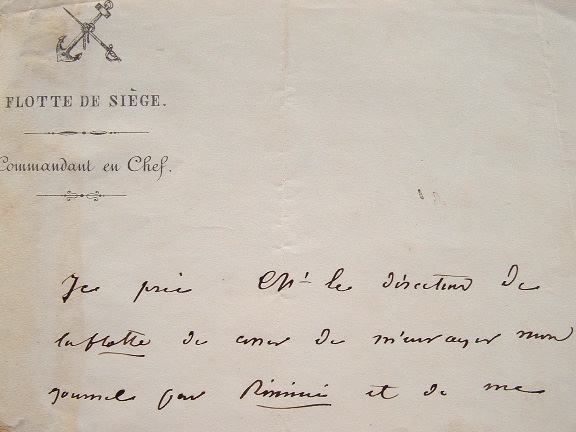 FLOTTE DE SIÈGE.
Commandant en Chef.
Je prie Mr le directeur de
la flotte de cesser de m'envoyer mon
journal par Rimini et de me